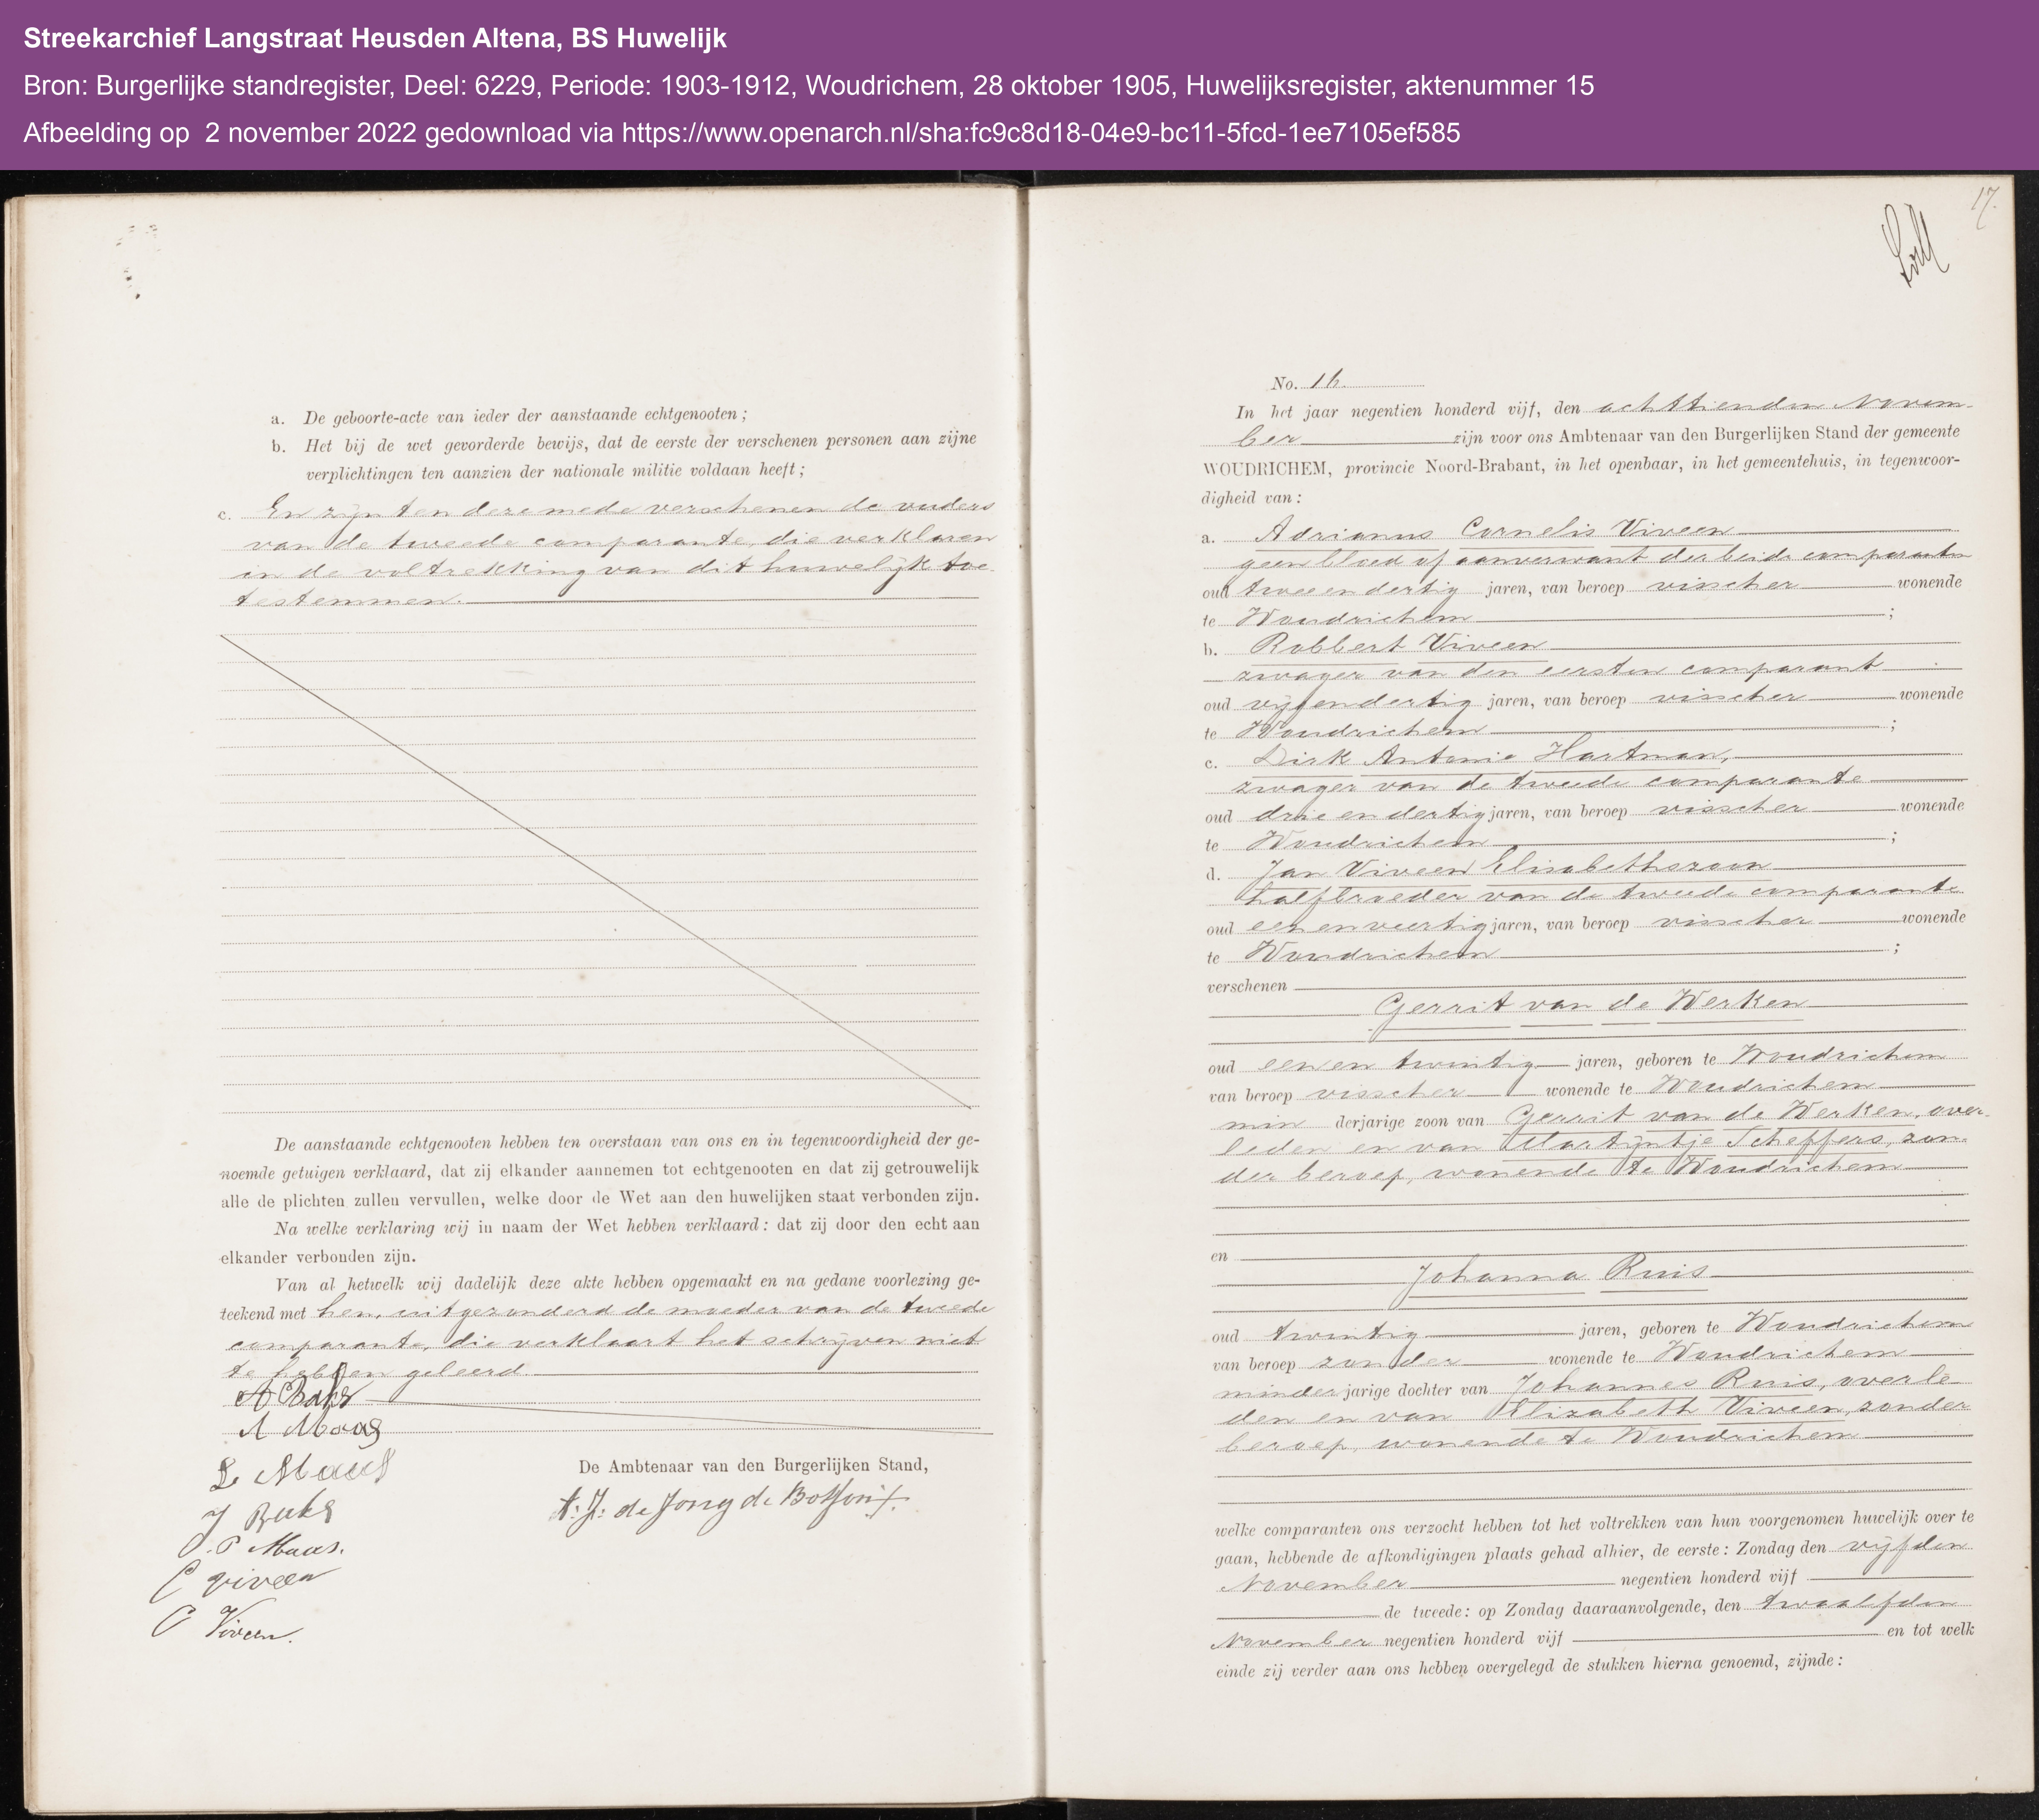 Streekarchief Langstraat Heusden Altena, BS Huwelijk
Bron: Burgerlijke standregister, Deel: 6229, Periode: 1903-1912, Woudrichem, 28 oktober 1905, Huwelijksregister, aktenummer 15
Afbeelding op 2 november 2022 gedownload via https://www.openarch.nl/sha:fc9c8d18-04e9-bc11-5fcd-1ee7105ef585
a. De geboorte-acte van ieder der aanstaande echtgenooten;
b. Het bij de wet gevorderde bewijs, dat de eerste der verschenen personen aan zijne
verplichtingen ten aanzien der nationale militie voldaan heeft;
c. En zijn ten deze mede verschenen de ouders
van de tweede comparante, die verklaren
in de voltrekking van dit huwelijk toe
testemmen.
De aanstaande echtgenooten hebben ten overstaan van ons en in tegenwoordigheid der ge-
noemde getuigen verklaard, dat zij elkander aannemen tot echtgenooten en dat zij getrouwelijk
alle de plichten zullen vervullen, welke door de Wet aan den huwelijken staat verbonden zijn.
Na welke verklaring wij in naam der Wet hebben verklaard: dat zij door den echt aan
elkander verbonden zijn.
Van al hetwelk wij dadelijk deze akte hebben opgemaakt en na gedane voorlezing ge-
teekend met hen, uitgezonderd de moeder van de tweede
comparante, die verklaart het schrijven niet
te hebben geleerd.
A Maas
De Ambtenaar van den Burgerlijken Stand,
P Maas.
C viveen
P Viveen.
17.
No. 16.
In het jaar negentien honderd vijf, den achttienden Novem-
ber zijn voor ons Ambtenaar van den Burgerlijken Stand der gemeente
WOUDRICHEM, provincie Noord-Brabant, in het openbaar, in het gemeentehuis, in tegenwoor-
digheid van:
a. Adrianus Cornelis Viveen
geen bloed of aanverwant der beide comparanten
oud twee en dertig jaren, van beroep visscher wonende
te Woudrichem ;
b. Robbert Viveen
zwager van den eersten comparant
oud vijf en dertig jaren, van beroep visscher wonende
te Woudrichem ;
c. Dirk Antonie Hartman,
zwager van de tweede comparante
oud drie en dertig jaren, van beroep visscher wonende
te Woudrichem ;
d. Jan Viveen Elisabethszoon
halfbroeder van de tweede comparante
oud een en veertig jaren, van beroep visscher wonende
te Woudrichem ;
verschenen
Gerrit van de Werken
oud een en twintig jaren, geboren te Woudrichem
van beroep visscher wonende te Woudrichem
min derjarige zoon van Gerrit van de Werken, over-
leden en van Martijntje Scheffers, zon-
der beroep, wonende te Woudrichem
en
Johanna Ruis
oud twintig jaren, geboren te Woudrichem
van beroep zonder wonende te Woudrichem
minder jarige dochter van Johannes Ruis, overle-
den en van Elizabeth Viveen, zonder
beroep, wonende te Woudrichem
welke comparanten ons verzocht hebben tot het voltrekken van hun voorgenomen huwelijk over te
gaan, hebbende de afkondigingen plaats gehad alhier, de eerste: Zondag den vijfden
November negentien honderd vijf
de tweede: op Zondag daaraanvolgende, den twaalfden
November negentien honderd vijf en tot welk
einde zij verder aan ons hebben overgelegd de stukken hierna genoemd, zijnde: